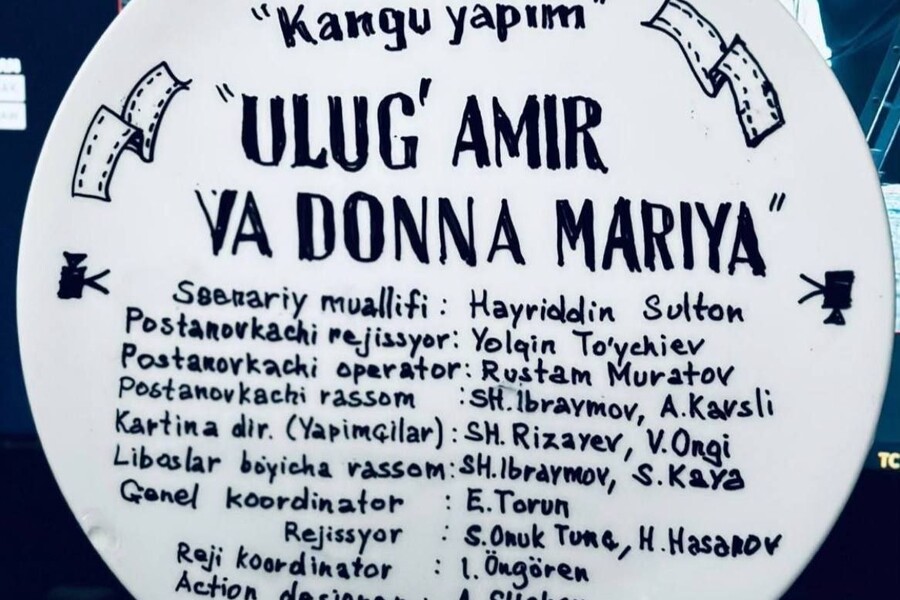 "Kangu yapım"
"ULUG' AMIR
VA DONNA MARIYA"
Ssenariy muallifi : Hayriddin Sulton
Postanovkachi rejissyor: Yolqin To'ychiev
Postanovkachi operator: Rustam Muratov
Postanovkachi rassom : SH.Ibraymov, A.Kavsli
Kartina dir. (Yapımçilar) : SH. Rizayev, V.Ongi
Liboslar bo'yicha rassom: SH.Ibraymov, S.Kaya
Genel koordinator : E.Torun
Rejissyor : S.Onuk Tunç, H.Hasanov
Reji koordinator : I.Öngören
Action
TC